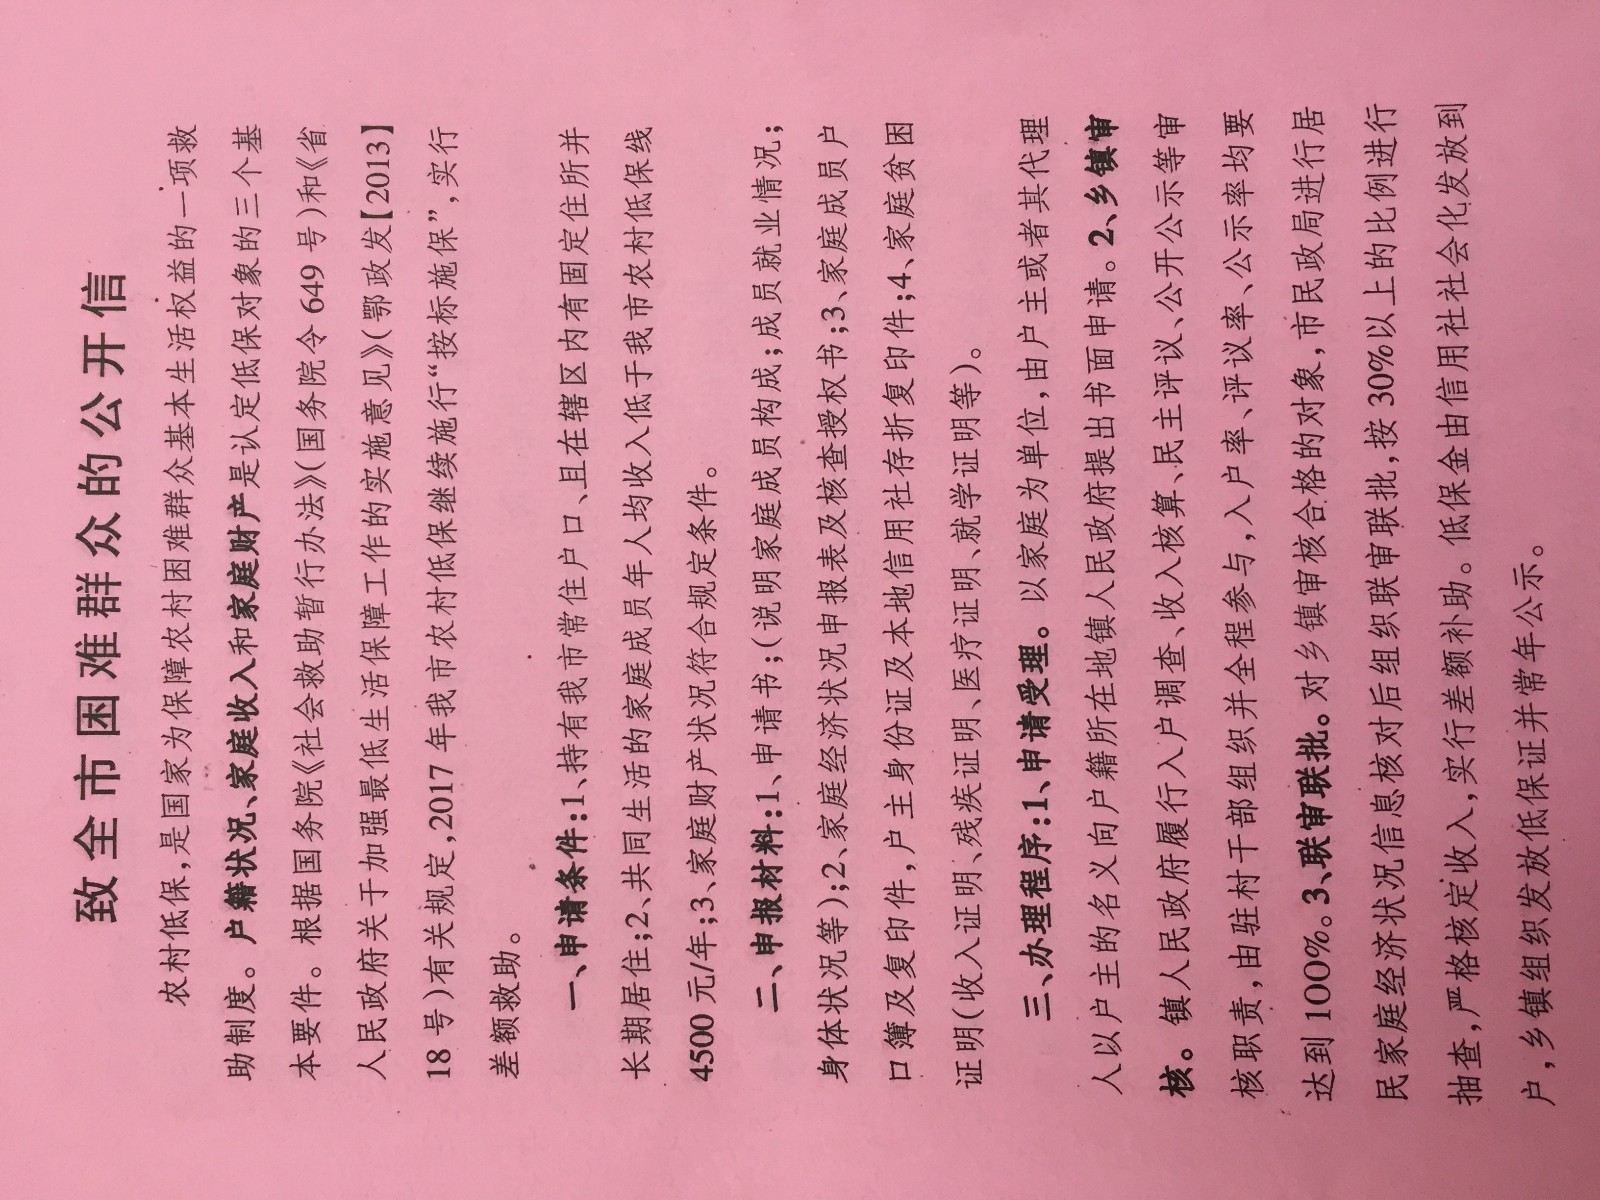 致全市困难群众的公开信
农村低保,是国家为保障农村困难群众基本生活权益的一项救
助制度。户籍状况、家庭收入和家庭财产是认定低保对象的三个基
本要件。根据国务院《社会救助暂行办法》(国务院令649号)和《省
人民政府关于加强最低生活保障工作的实施意见》(鄂政发【2013】
18号)有关规定,2017年我市农村低保继续施行“按标施保”,实行
差额救助。
一、申请条件:1、持有我市常住户口、且在辖区内有固定住所并
长期居住;2、共同生活的家庭成员年人均收入低于我市农村低保线
4500元/年;3、家庭财产状况符合规定条件。
二、申报材料:1、申请书;(说明家庭成员构成;成员就业情况;
身体状况等);2、家庭经济状况申报表及核查授权书;3、家庭成员户
口簿及复印件,户主身份证及本地信用社存折复印件;4、家庭贫困
证明(收入证明、残疾证明、医疗证明、就学证明等)。
三、办理程序:1、申请受理。以家庭为单位,由户主或者其代理
人以户主的名义向户籍所在地镇人民政府提出书面申请。2、乡镇审
核。镇人民政府履行入户调查、收入核算、民主评议、公开公示等审
核职责,由驻村干部组织并全程参与,入户率、评议率、公示率均要
达到100%。3、联审联批。对乡镇审核合格的对象,市民政局进行居
民家庭经济状况信息核对后组织联审联批,按30%以上的比例进行
抽查,严格核定收入,实行差额补助。低保金由信用社社会化发放到
户,乡镇组织发放低保证并常年公示。